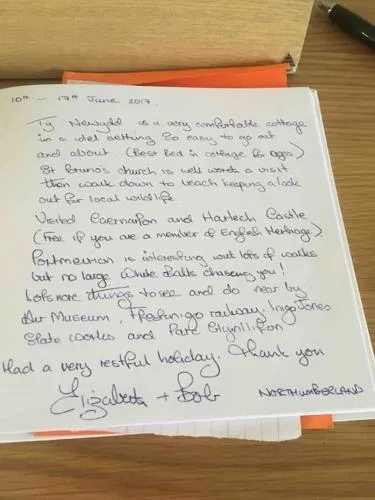 10th - 17th June 2017
Ty Newydd is a very comfortable cottage
in a idel setting So easy to go out
and about (Best Bed in cottage for ages)
St Beuno's church is well worth a visit
then walk down to beach keeping a look
out for local wildlife
Visited Caernarfon and Harlech Castle
(Free if you are a member of English Heritage)
Portmeirion is interesting with lots of walks
but no large White Balls chasing you!
Lots more things to see and do near by.
Air Museum, Ffestiniog railway. Inigo Jones
Slate works and Parc Glynllifon
Had a very restful holiday. Thank you
Elizabeth + Bob
NORTHUMBERLAND